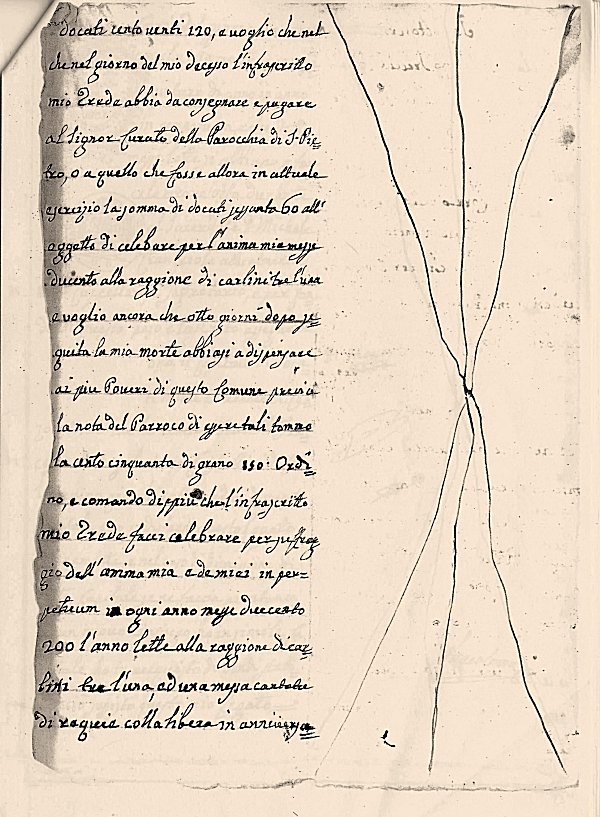 docati cento venti 120, e voglio che nel
che nel giorno del mio decesso l'infrascritto
mio Erede abbia da consegnare e pagare
al Signor Curato della Parocchia di S. Pie=
tro, o a quello che fosse allora in attuale
esercizio la somma di docati sessanta 60 all'
oggetto di celebare per l'anima mia messe
ducento alla raggione di carlini tre l'una
e voglio ancora che otto giorni dopo se=
guita la mia morte abbiasi a dispensare
ai piu Poveri di questo Comune previa
la nota del Parroco di essere tali tommo
la cento cinquanta di grano 150. Ordi=
no, e comando di ppiù che l'infrascritto
mio Erede facci celebrare per suffrag
gio dell'anima mia e de miei in per=
petuum in ogni anno messe duecento
200 l'anno lette alla raggione di car=
lini tre l'una, ed una messa cantata
di requie colla libera in anniversa=